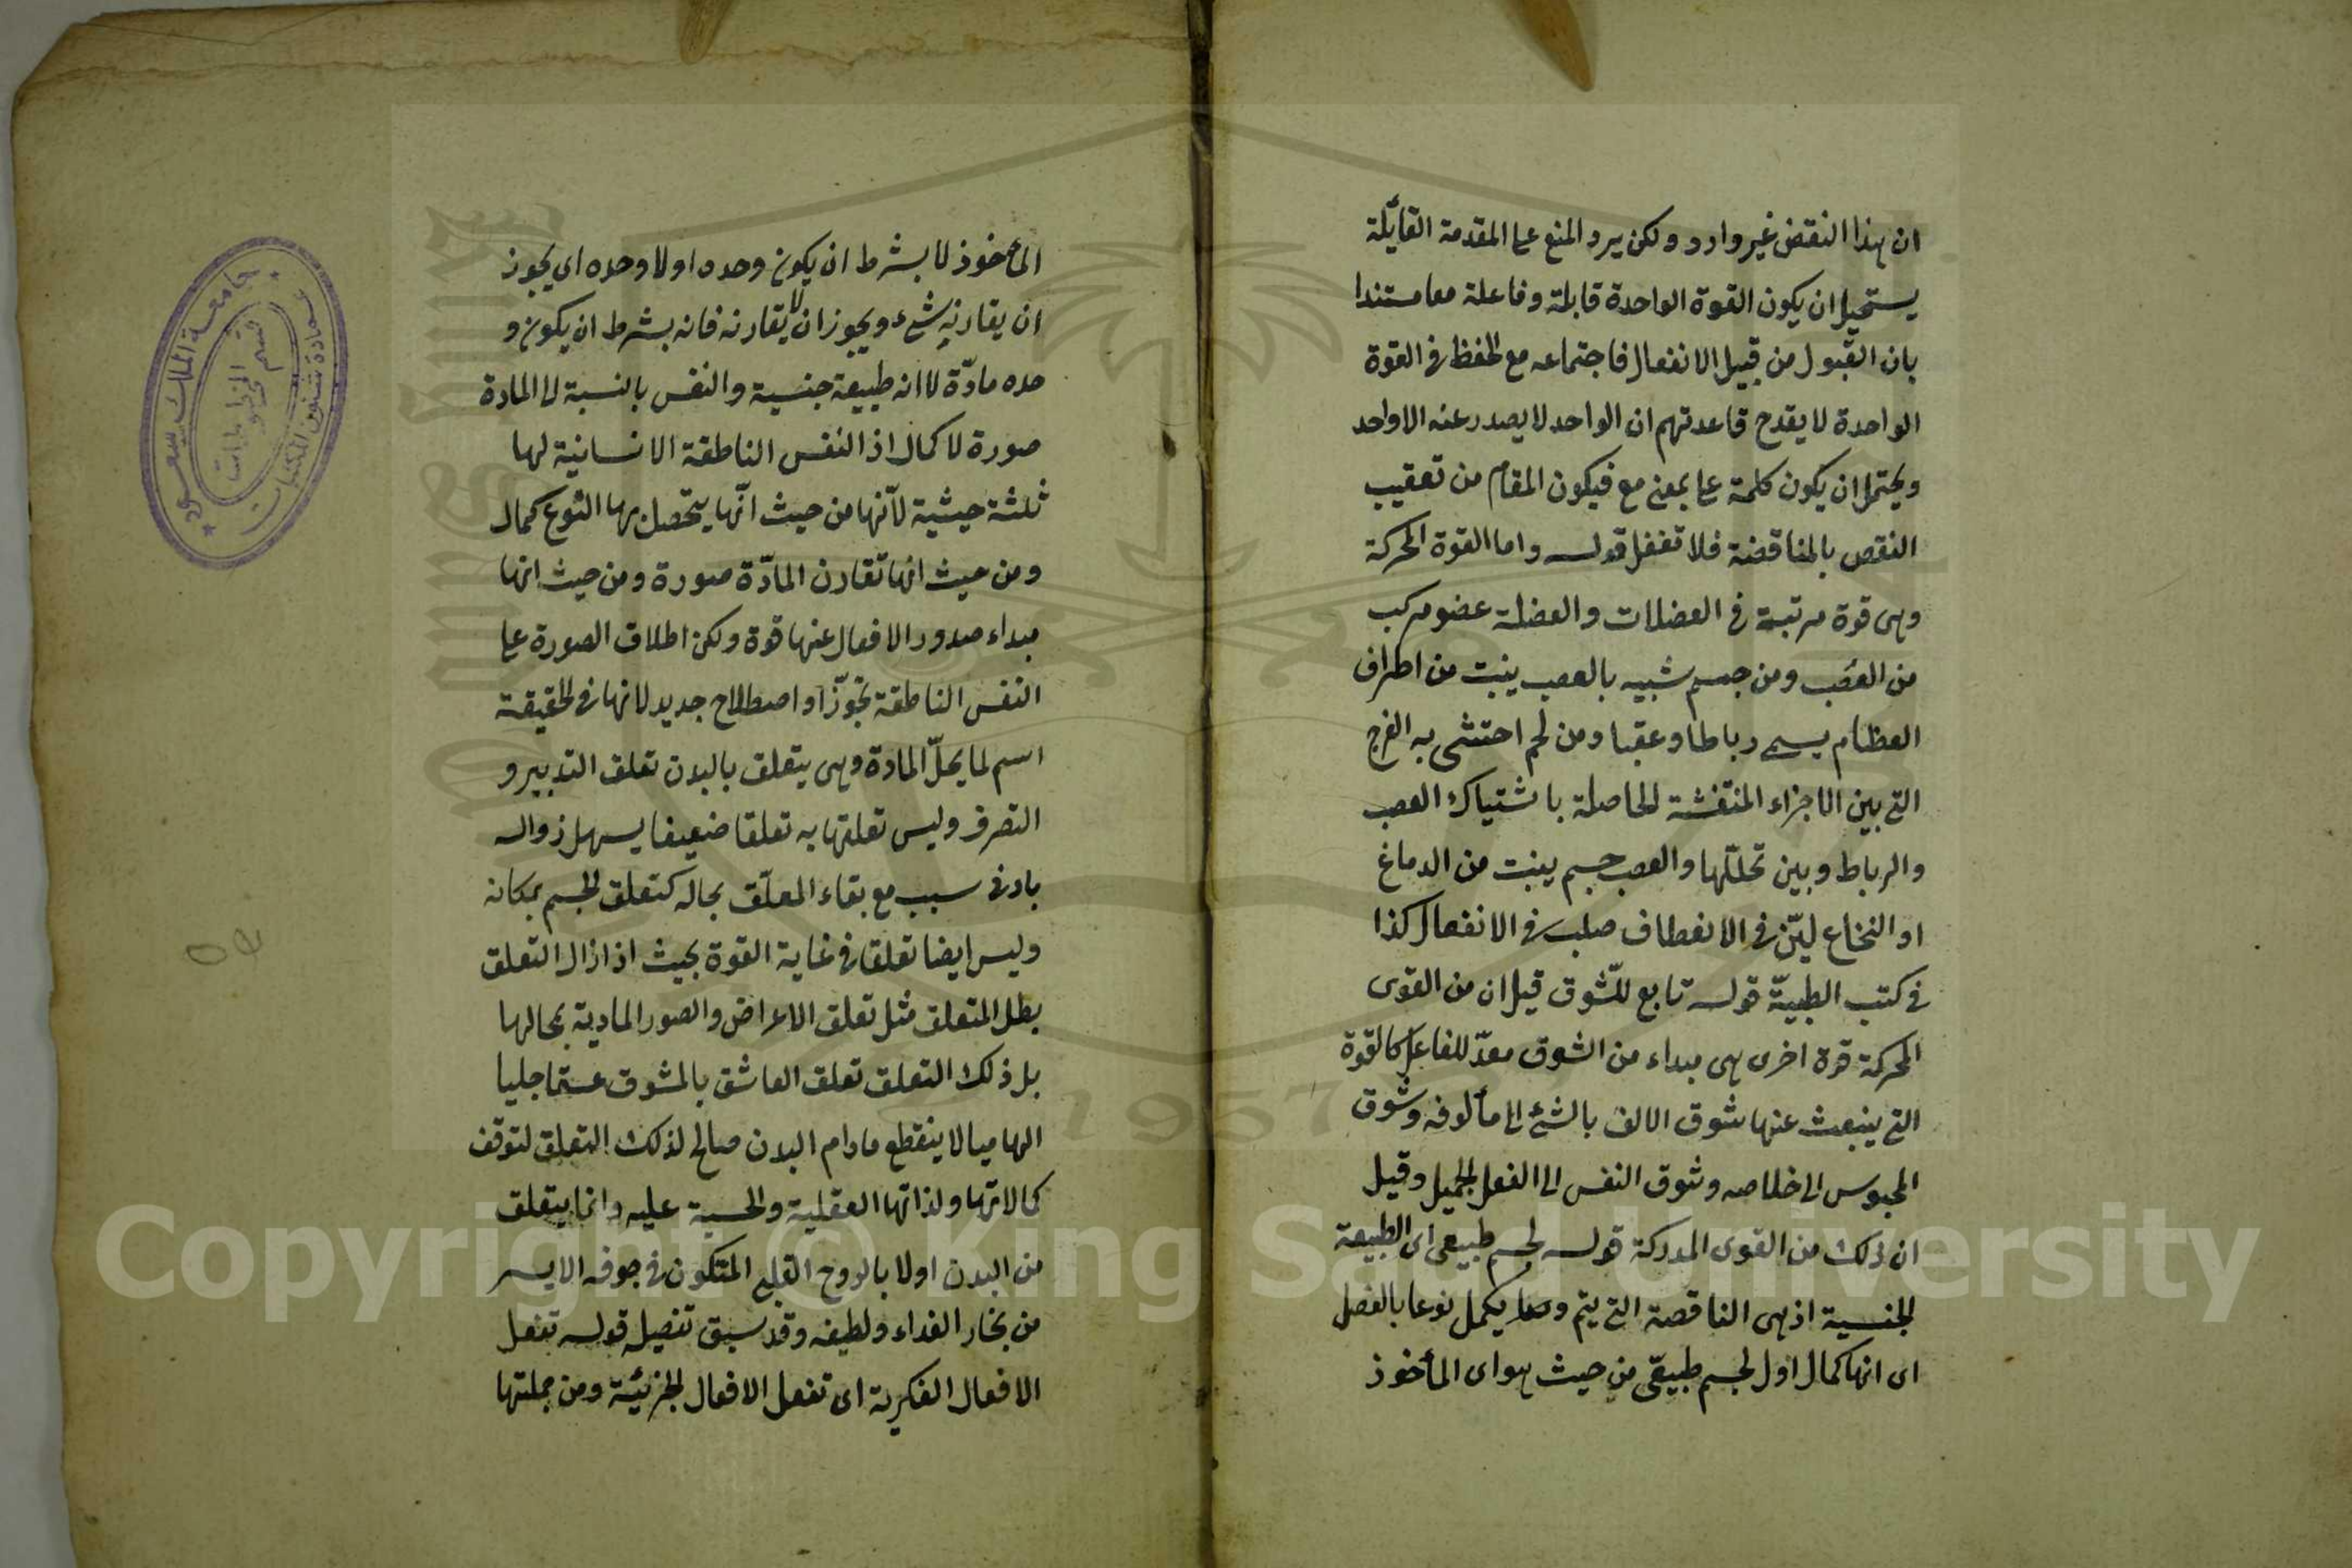 ان هذا النقض غير وارد ولكن يرد المنع على المقدمة القايّلة
يستحيل ان يكون القوة الواحدة قابلة وفاعلة معا مستندا
بان القبول من قبيل الانفعال فاجتماعه مع الحفظ في القوة
الواحدة لا يقدح قاعدتهم ان الواحد لا يصدر عنه الا واحد
ويحتمل ان يكون كلمة على بمعنى مع فيكون المقام من تعقيب
النقض بالمناقضة فلا تغفل قوله واما القوة المحركة
وهي قوة مرتبة في العضلات والعضلة عضو مركب
من العصب ومن جسم شبيه بالعصب ينبت من اطراف
العظام يسمى رباطا وعقبا ومن لحم احتشى به الفرج
التي بين الاجزاء المنتفشة الحاصلة باشتياك العصب
والرباط وبين تحللها والعصب جسم ينبت من الدماغ
او النخاع ليّن في الانعطاف صلب في الانفصال كذا
في كتب الطبيّة قوله تابع للشّوق قيل ان من القوى
المحركة قوة اخرى هي مبداء من الشوق معدّ للفاعل كالقوة
التي ينبعث عنها شوق الالف بالشئ الى مألوفه وشوق
المحبوس الى خلاصه وشوق النفس الى الفعل الجميل وقيل
ان ذلك من القوى المدركة قوله لجسم طبيعي اى الطبيعة
الجنسية اذ هي الناقصة التي يتم و يكمل نوعا بالفصل
اى انها كمال اول لجسم طبيعّى من حيث هو اى المأخوذ
المأخوذ لا بشرط ان يكون وحده او لا وحده اى يجوز
ان يقارنه شئ ويجوز ان لا يقارنه فانه بشرط ان يكون و
حده مادّة لا انه طبيعة جنسية والنفس بالنسبة الى المادة
صورة لا كمال اذ النفس الناطقة الانسانية لها
ثلثة حيثية لانّها من حيث انّها يتحصل بها النّوع كمال
ومن حيث انها تقارن المادّة صورة ومن حيث انها
مبداء صدور الافعال عنها قوة ولكن اطلاق الصورة على
النفس الناطقة تجوّز او اصطلاح جديد لانها في الحقيقة
اسم لما يحلّ المادة وهي يتعلق بالبدن تعلق التدبير و
التصرف وليس تعلقها به تعلقا ضعيفا يسهل زواله
بادنى سبب مع بقاء المعلّق بحاله كتعلق الجسم بمكانه
وليس ايضا تعلقا في غاية القوة بحيث اذا زال التعلق
بطل المتعلق مثل تعلق الاعراض والصور المادية بمحالها
بل ذلك التعلق تعلق العاشق بالمشوق عشقا جليا
الهاميا لا ينقطع مادام البدن صالح لذلك التعلق لتوقف
كمالاتها ولذاتها العقلية والحسية عليه وانما يتعلق
من البدن اولا بالروح القلبي المتكون في جوفه الايسر
من بخار الغداء ولطيفه وقد سبق تفصيله قوله تفعل
الافعال الفكرية اى تفعل الافعال الجزئيّة ومن جملتها
جامعة الملك سعود
عمادة شئون المكتبات
قسم المخطوطات
1957
Copyright © King Saud University